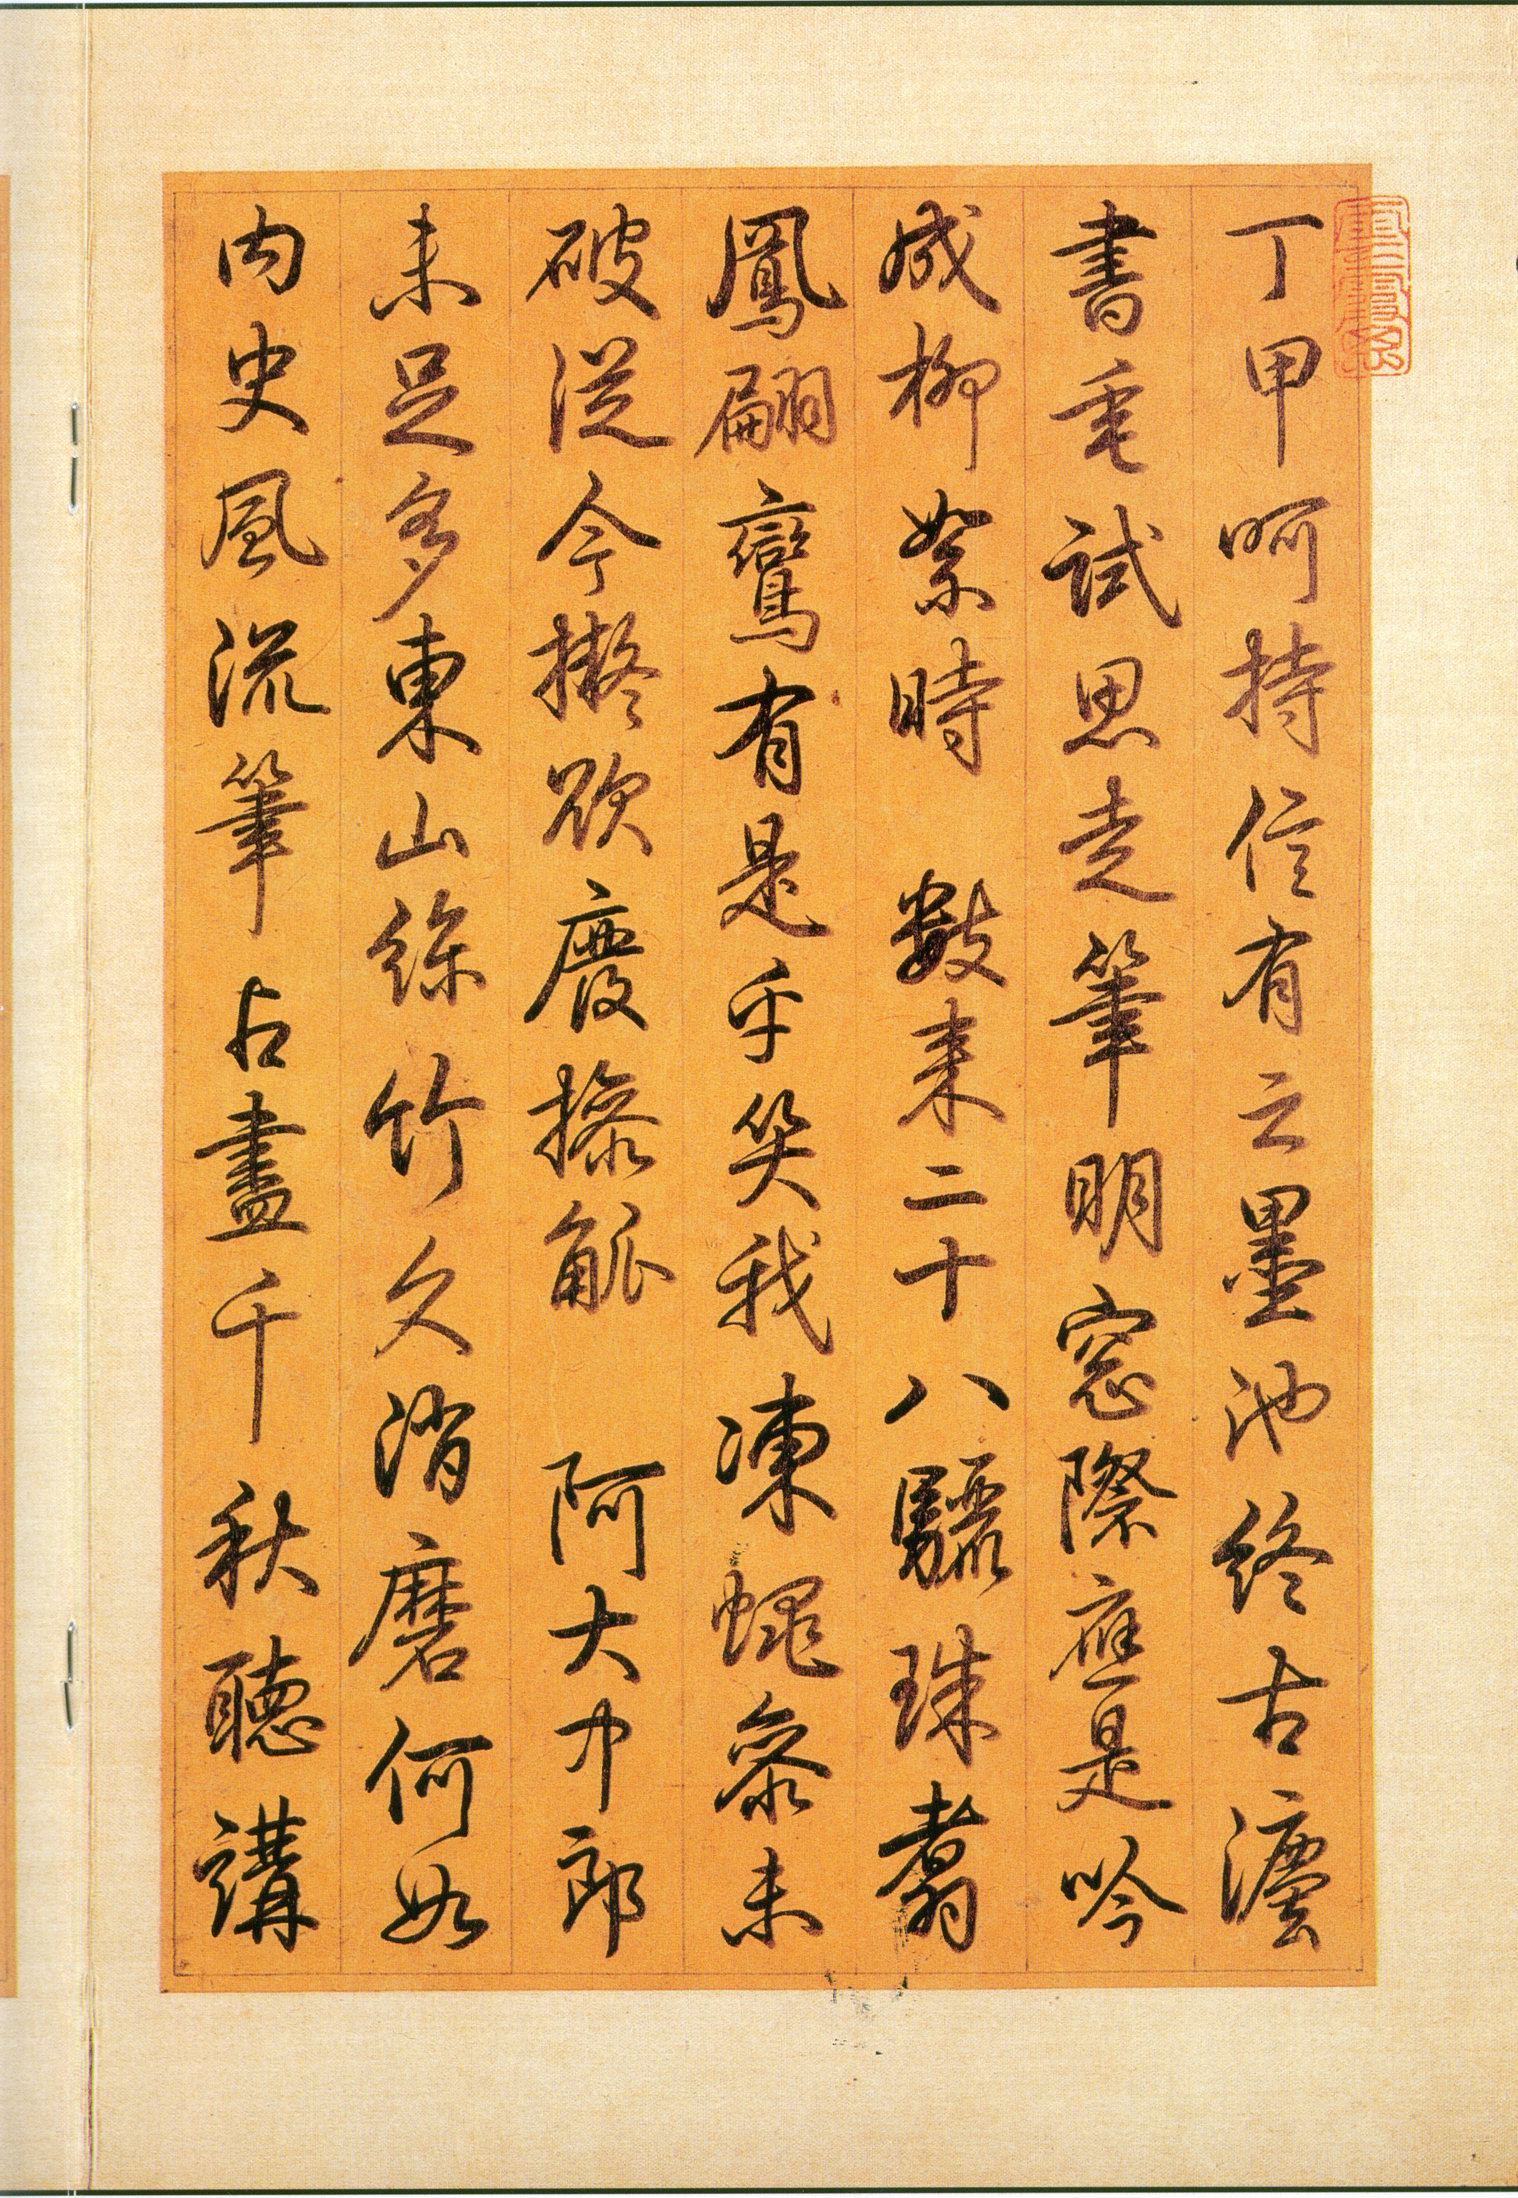 丁甲呵持信有之墨池終古
書垂試思走筆明窓際應是吟
成柳絮時 數来二十八驪珠翥
鳳翩鸞有是乎笑我凍蠅參未
破從今擬欲廢操觚 阿大中郎
未足多東山絲竹久消磨何如
内史風流筆占盡千秋聽講